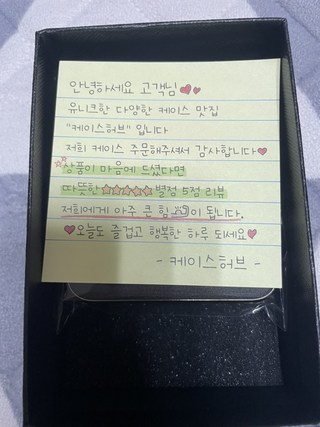 안녕하세요 고객님♥♥
유니크한 다양한 케이스 맛집
"케이스허브" 입니다
저희 케이스 주문해주셔서 감사합니다♥
☆상품이 마음에 드셨다면
따뜻한 ☆☆☆☆☆ 별점 5점 리뷰
저희에게 아주 큰 힘이 됩니다.
♥오늘도 즐겁고 행복한 하루 되세요♥
- 케이스허브 -